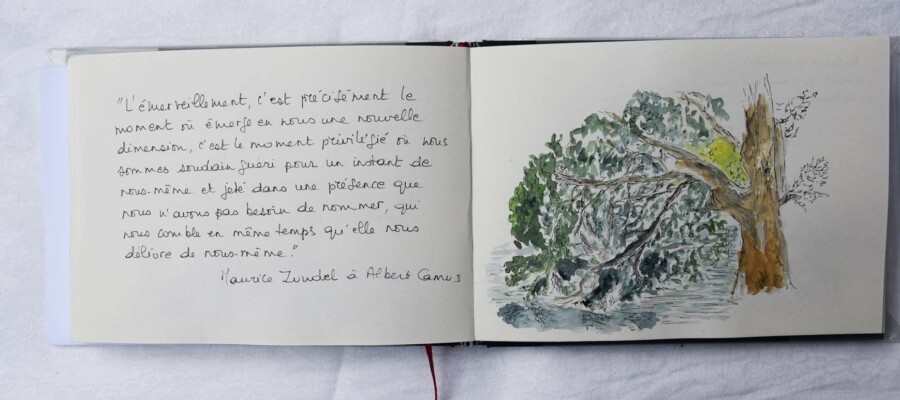 "L'émerveillement, c'est précisément le
moment où émerge en nous une nouvelle
dimension, c'est le moment privilégié où nous
sommes soudain guéri pour un instant de
nous-même et jeté dans une présence que
nous n'avons pas besoin de nommer, qui
nous comble en même temps qu'elle nous
délivre de nous-même."
Maurice Zundel à Albert Camus